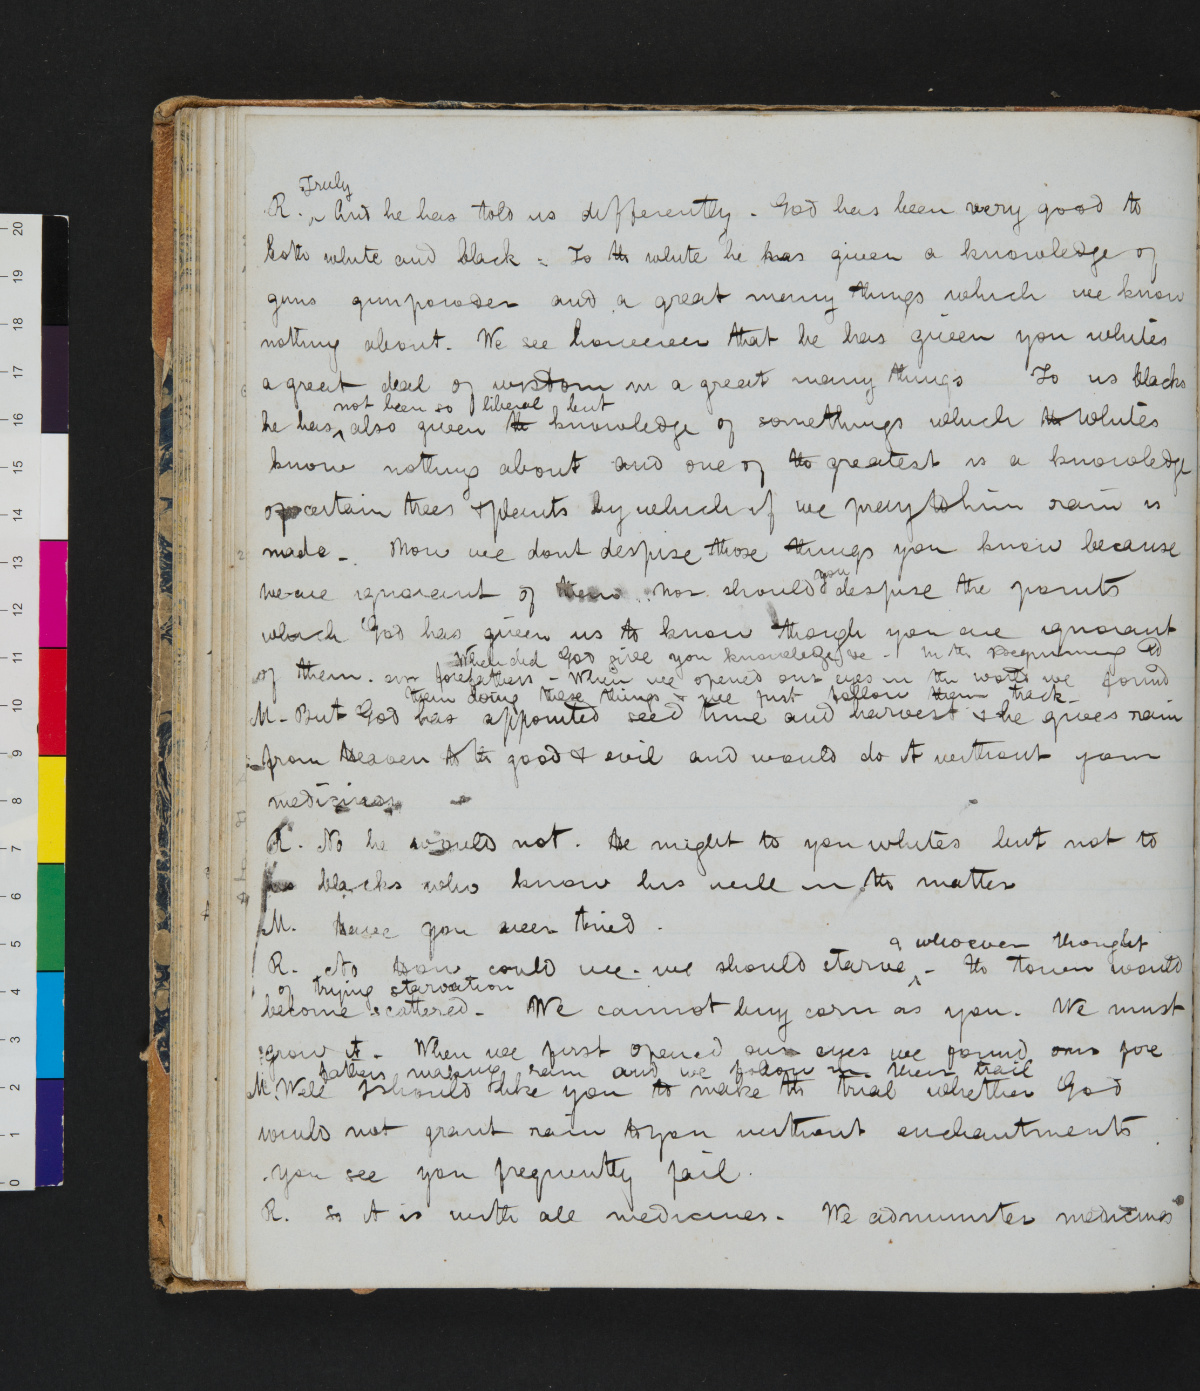 Truly
R. And he has told us differently. God has been very good to
both white and black = To the white he has given a knowledge of
guns gunpowder and a great many things which we know
nothing about. We see however that he has given you whites
a great deal of wisdom in a great many things To us blacks
not been so liberal but
he has also given the knowledge of somethings which the whites
know nothing about and one of the greatest is a knowledge
of certain trees & plants by which if we pray to him rain is
made - Now we dont despise those things you know because
you
we are ignorant of them. Nor should despise the points
which God has given us to know though you are ignorant
When did God give you knowledge - In the beginning
of them. our forefathers - When we opened our eyes in the world we found
them doing these things & we just follow their track -
M - But God has appointed seed time and harvest & he gives rain
from heaven to the good & evil and would do it without your
medicines
R. No he would not. He might to you whites but not to
us blacks who know his will in the matter
M. Have you ever tried.
& whoever thought
R. No how could we - we should starve - The town would
of trying starvation
become scattered - We cannot buy corn as you. We must
grow it - When we first opened our eyes we found our fore
fathers making rain and we follow in their trail
M. Well I should like you to make the trial whether God
would not grant rain to you without enchantments.
You see you frequently fail.
R. So it is with all medicines - We administer medicines